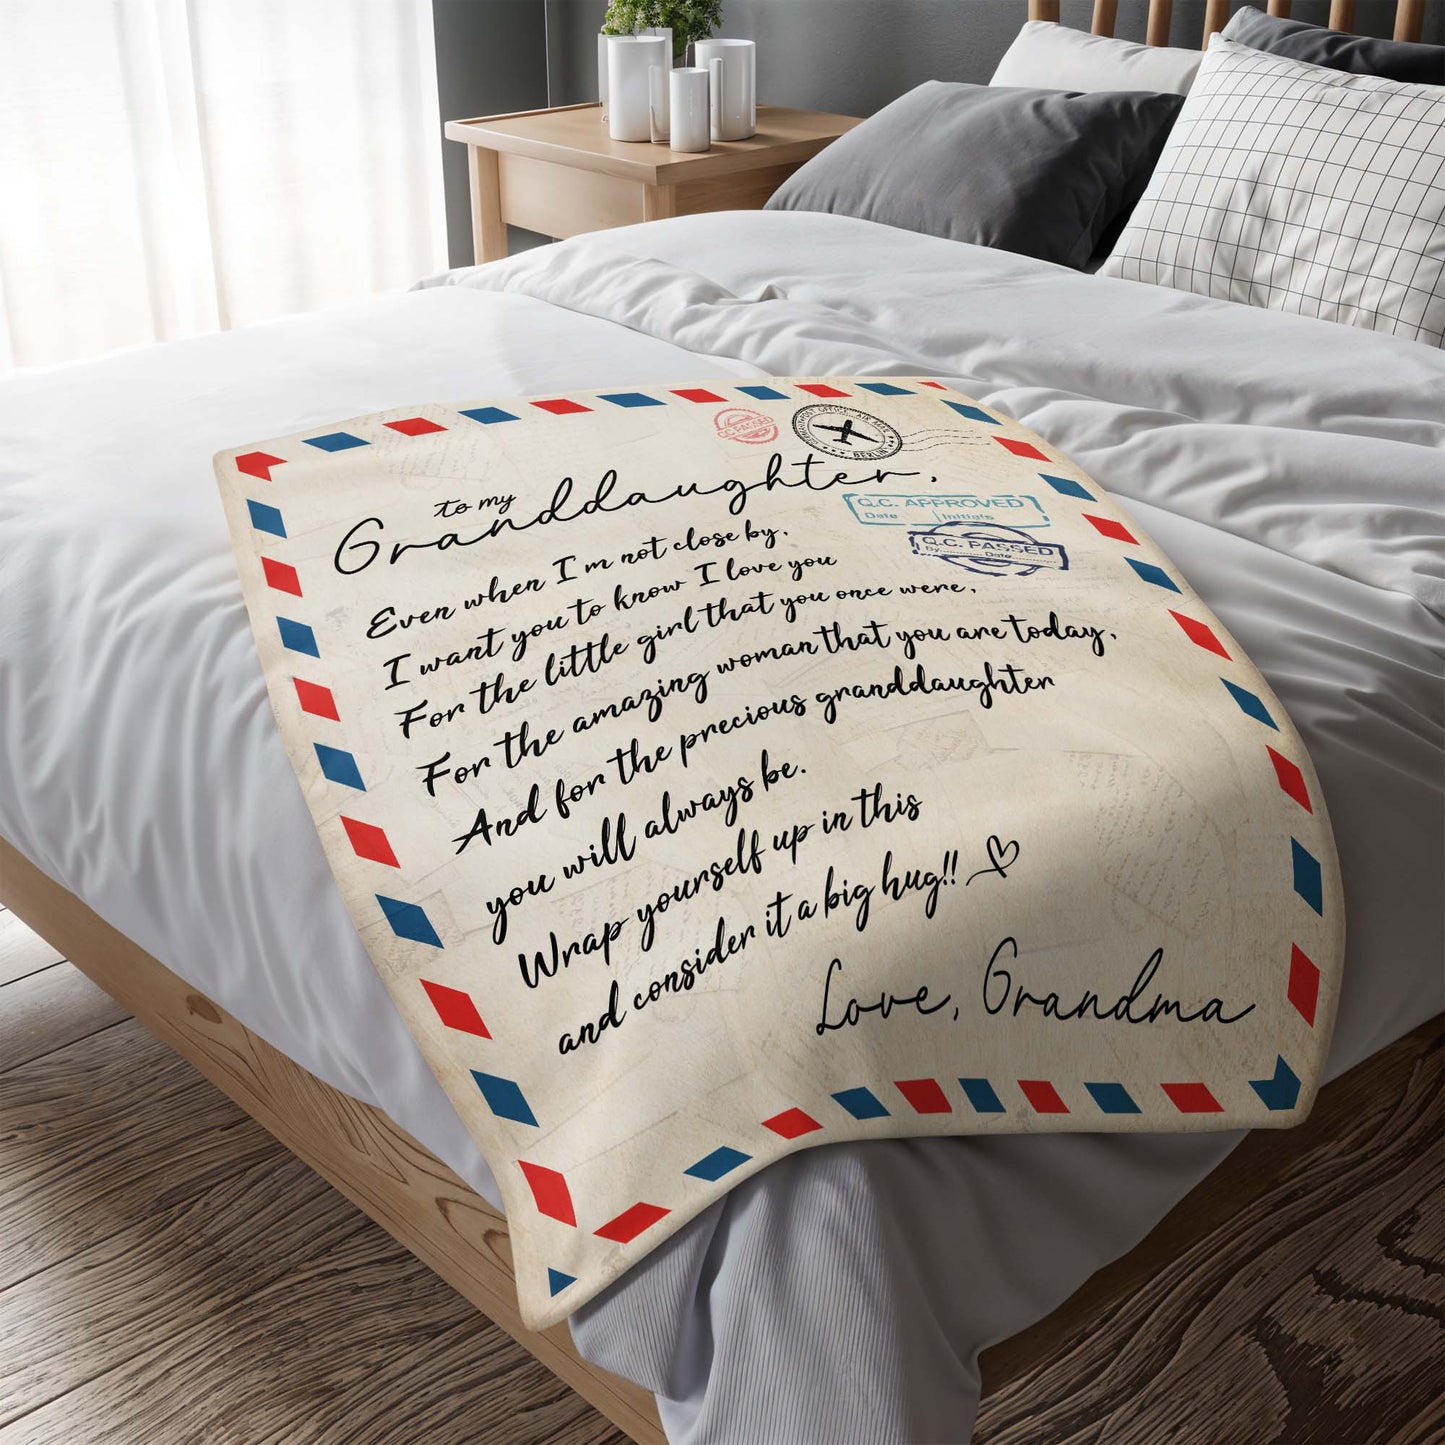 C.C PASSED
GERMANY POST OFFICE AIR MAIL
BERLIN
Q.C. APPROVED
Date Initials
Q.C. PASSED
By............ Date............
to my
Granddaughter,
Even when I'm not close by,
I want you to know I love you
For the little girl that you once were,
For the amazing woman that you are today,
And for the precious granddaughter
you will always be.
Wrap yourself up in this
and consider it a big hug!!
Love, Grandma